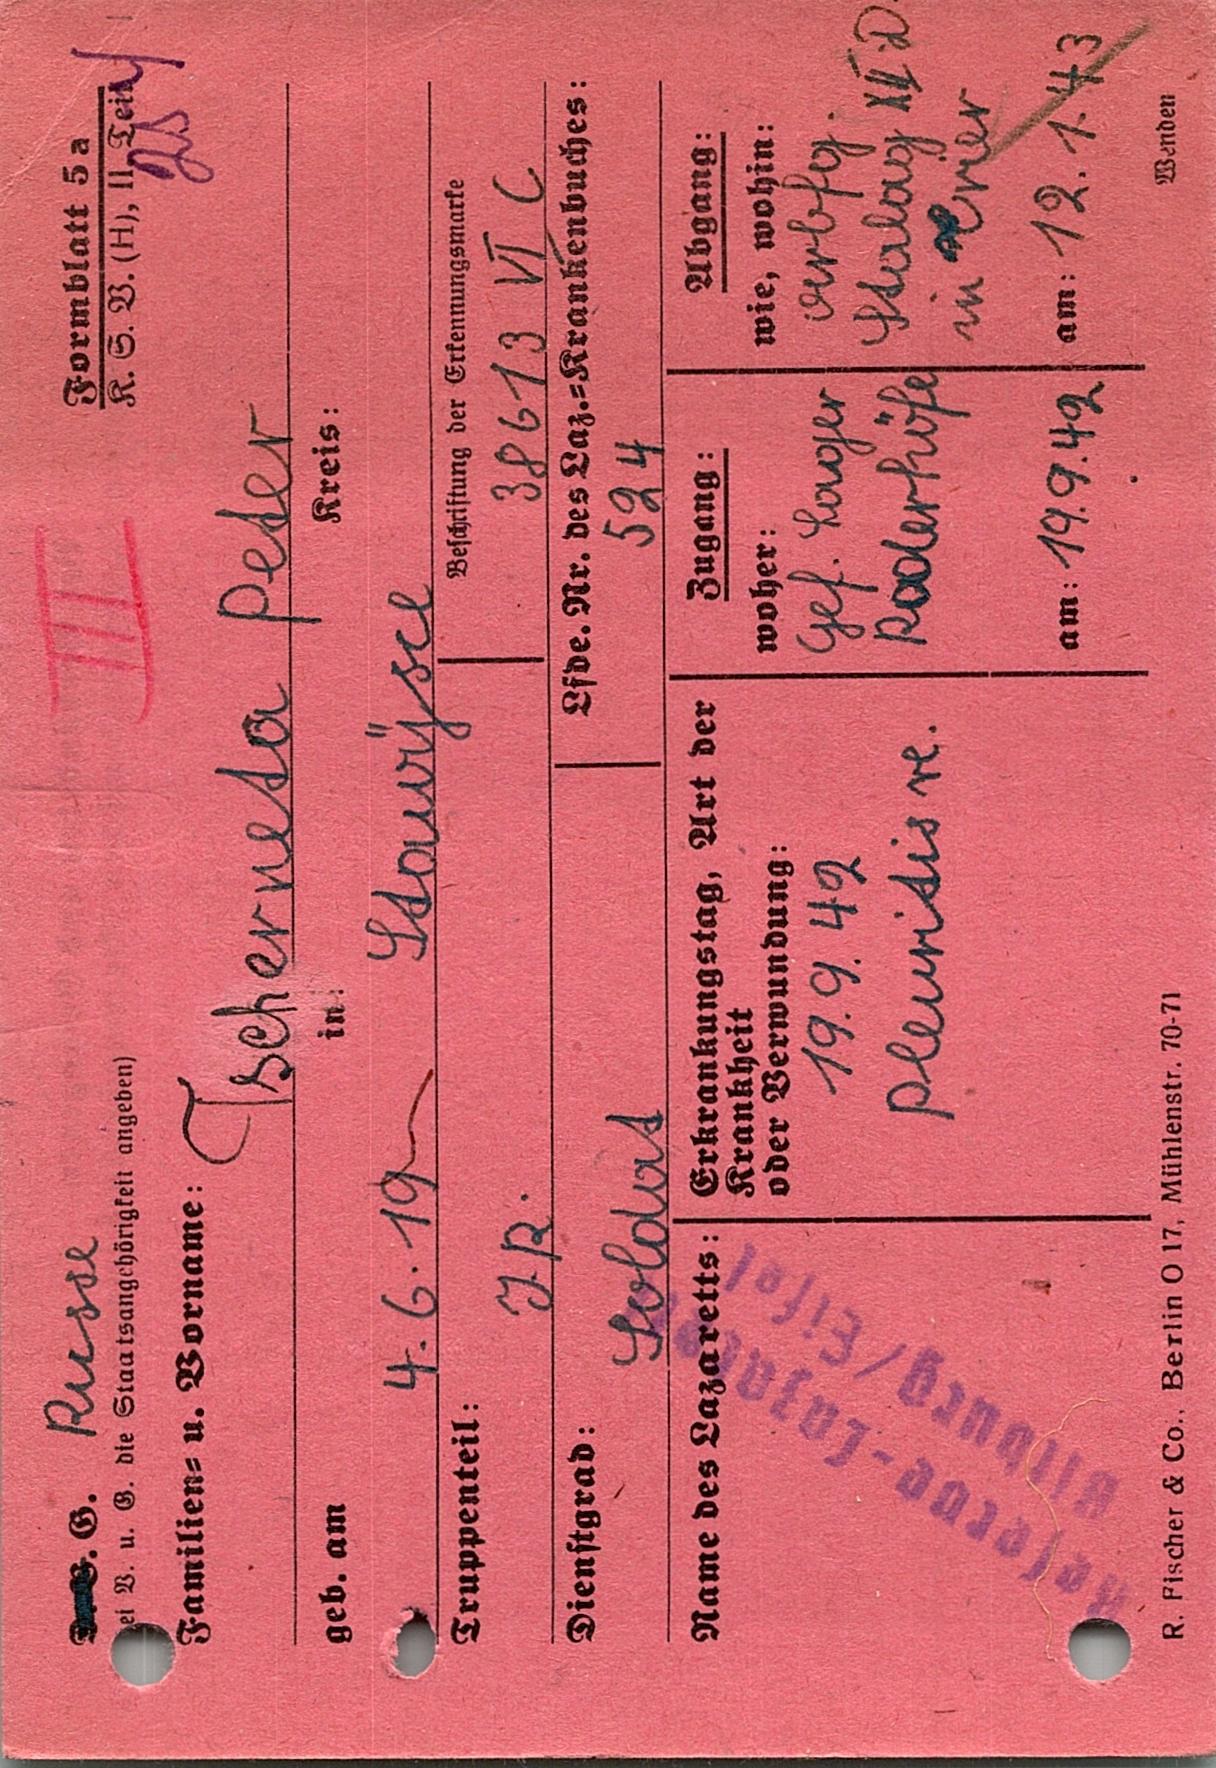 G. Russe
Formblatt 5a
ei V. u. G. die Staatsangehörigkeit angeben)
K. S. V. (H), II. Teil
III
Familien- u. Vorname: Tscherneta Peter
geb. am
in:
Kreis:
4.6.19
Stawijsce
Truppenteil:
J.R.
Beschriftung der Erkennungsmarke
38613 VI C
Dienstgrad:
Soldat
Lfde. Nr. des Laz.-Krankenbuches:
524
Name des Lazaretts:
Reserve-Lazarett
Bitburg/Eifel
Erkrankungstag, Art der
Krankheit
oder Verwundung:
19.9.42
Pleuritis re.
Zugang:
woher:
Gef. Lager
Raderhöfe
am: 19.9.42
Abgang:
wie, wohin:
Stalag XII D.
in Trier
am: 12.1.43
R. Fischer & Co., Berlin O 17, Mühlenstr. 70-71
Wenden